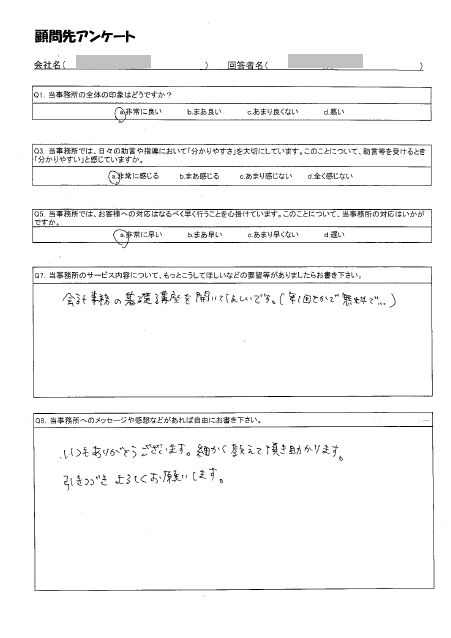 顧問先アンケート
会社名(　　　　　　) 回答者名(　　　　　　)
Q1. 当事務所の全体の印象はどうですか?
a.非常に良い b.まあ良い c.あまり良くない d.悪い
Q3. 当事務所では、日々の助言や指導において「分かりやすさ」を大切にしています。このことについて、助言等を受けるとき
「分かりやすい」と感じていますか。
a.非常に感じる b.まあ感じる c.あまり感じない d.全く感じない
Q5. 当事務所では、お客様への対応はなるべく早く行うことを心掛けています。このことについて、当事務所の対応はいかが
ですか。
a.非常に早い b.まあ早い c.あまり早くない d.遅い
Q7. 当事務所のサービス内容について、もっとこうしてほしいなどの要望等がありましたらお書き下さい。
会計事務の基礎講座を開いてほしいです。(年1回とかで無料で…)
Q8. 当事務所へのメッセージや感想などがあれば自由にお書き下さい。
いつもありがとうございます。細かく教えて頂き助かります。
引きつづきよろしくお願いします。